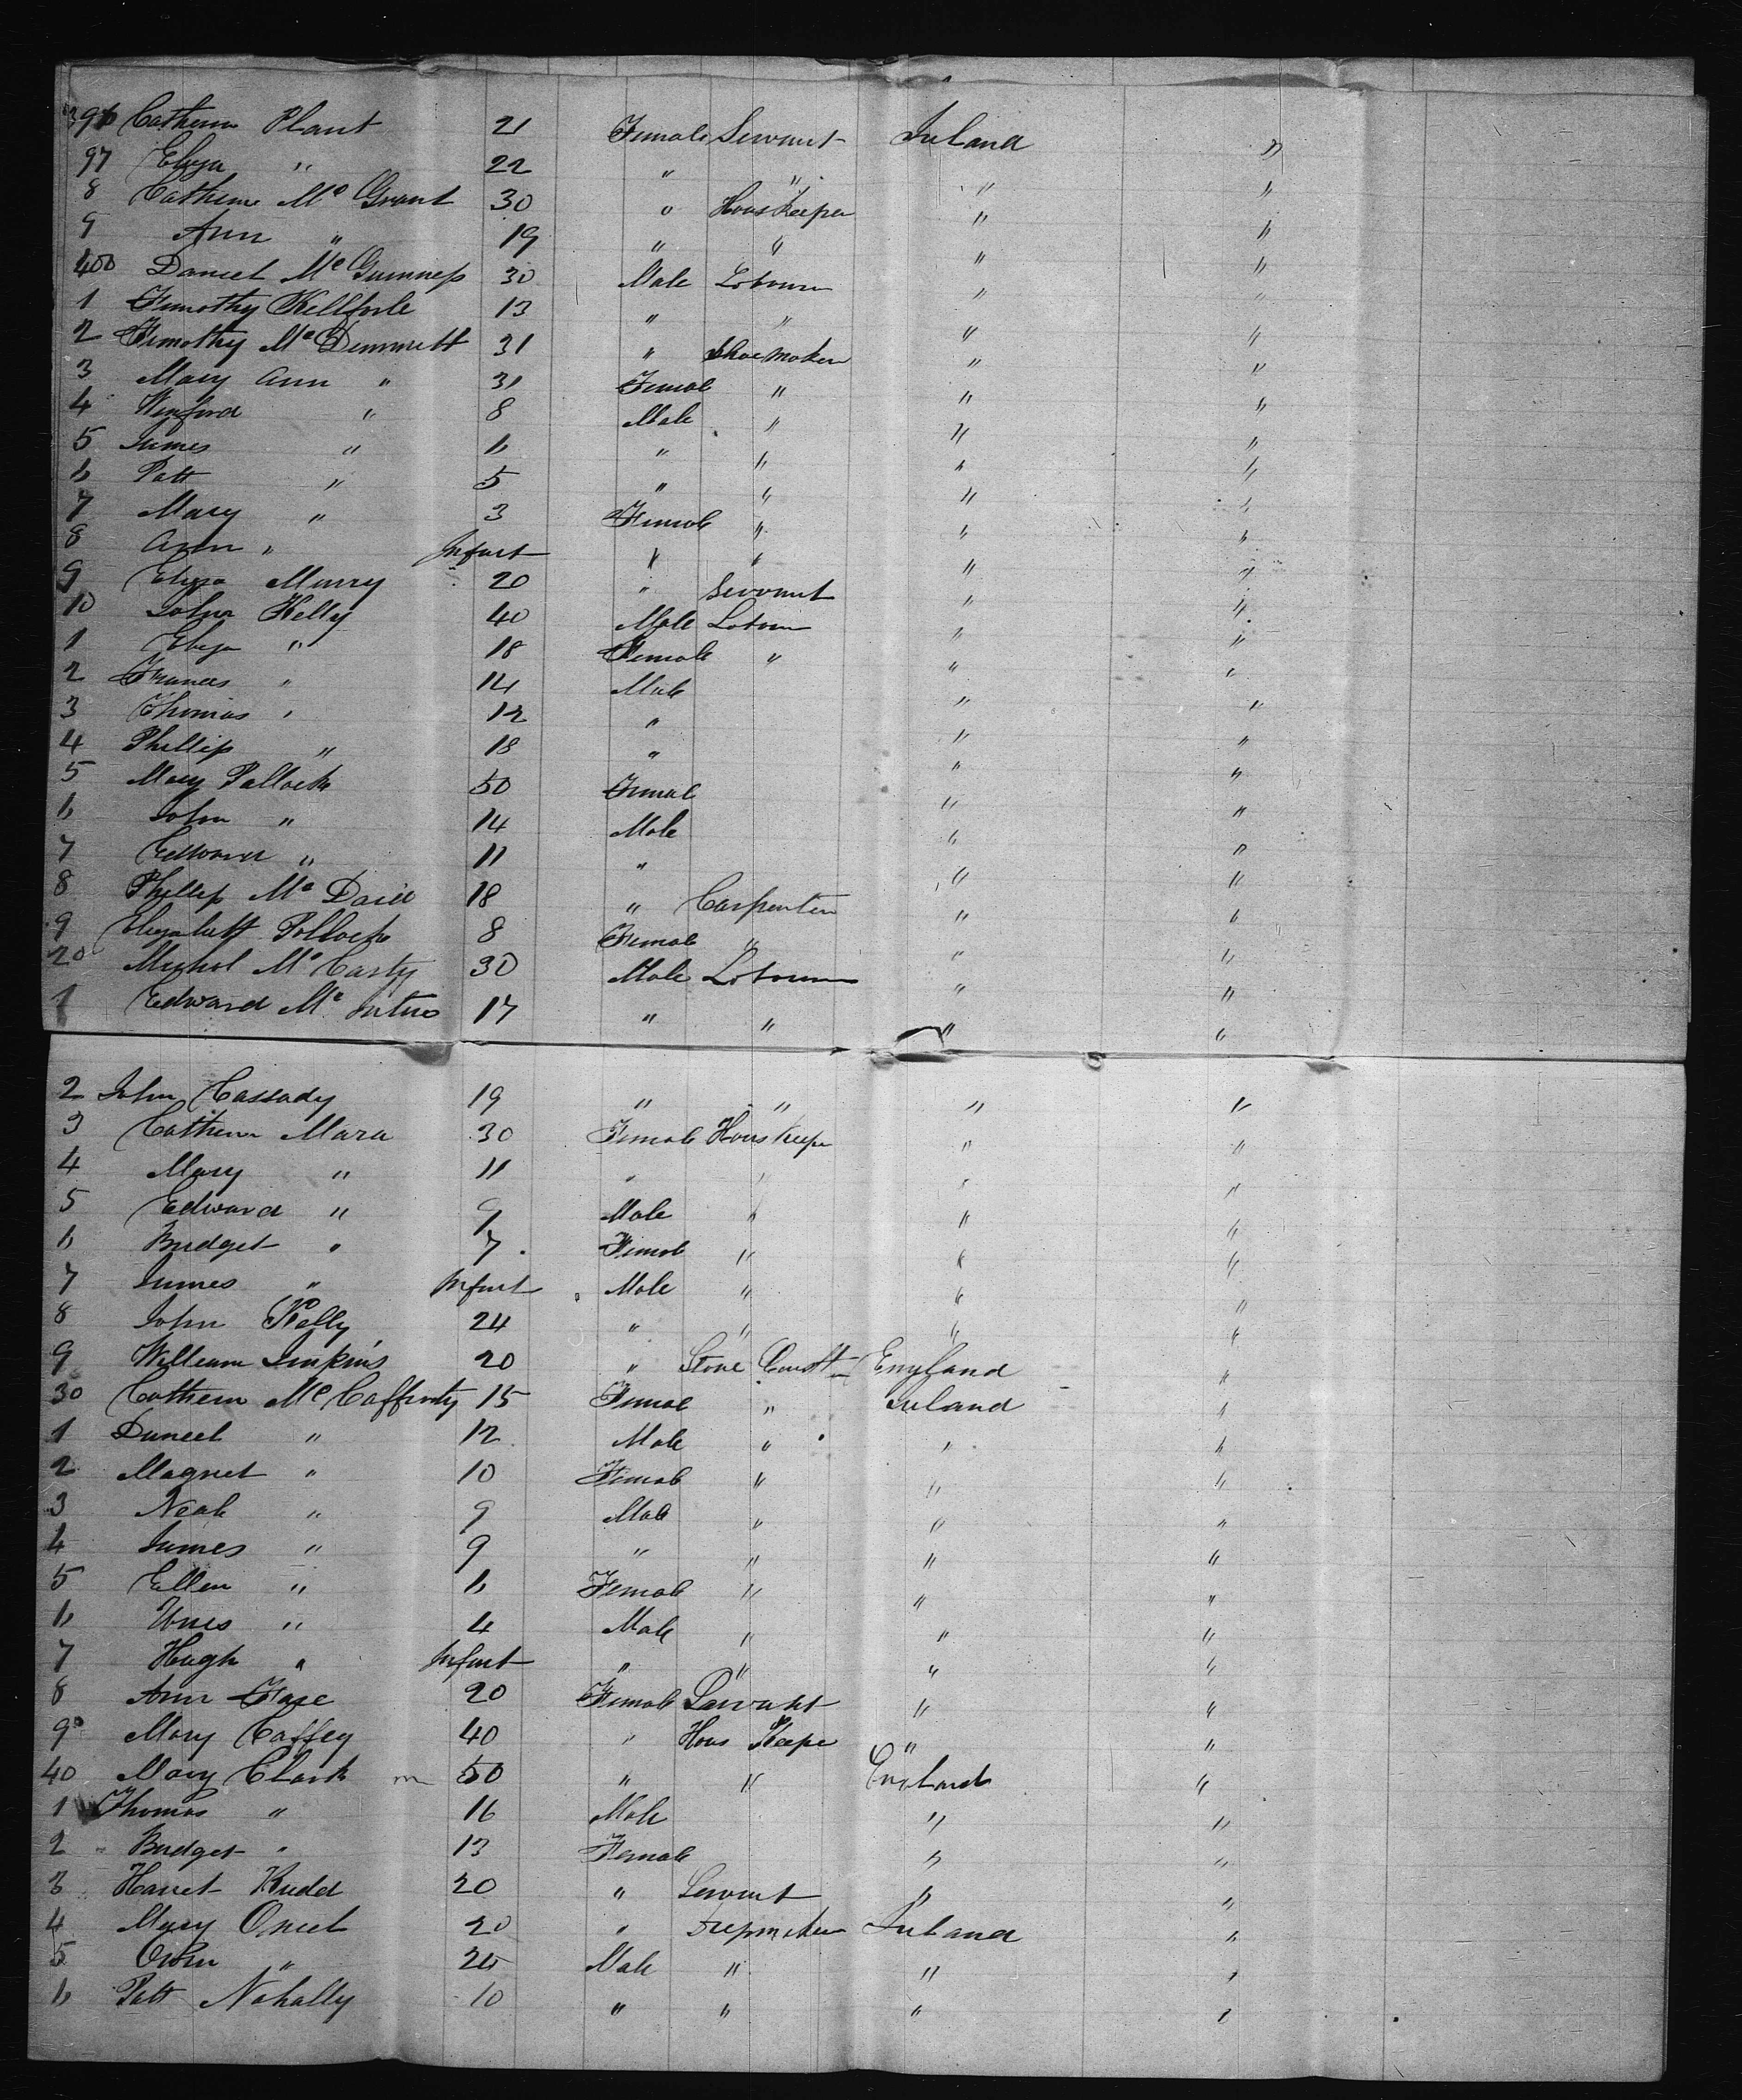 396 Cathern Plant 21 Female Servant Ireland "
97 Eliza " 22 " " " "
8 Cathern Mc Grant 30 " Hous Keeper " "
9 Ann " 19 " " " "
400 Daniel Mc Guinness 30 Male Labourer " "
1 Timothy 13 " " " "
2 Timothy Mc Dermett 31 " Shoe Maker " "
3 Mary Ann " 31 Female " " "
4 Winford " 8 Male " " "
5 James " 6 " " " "
6 Patt " 5 " " " "
7 Mary " 3 Female " " "
8 Ann " Infant " " " "
9 Eliza Murry 20 " Servant " "
10 John Kelly 40 Male Labourer " "
1 Eliza " 18 Female " " "
2 Frances " 14 Male " "
3 Thomas " 12 " " "
4 Phillip " 18 " " "
5 Mary Pallock 50 Female " "
6 John " 14 Male " "
7 Edward " 11 " " "
8 Phillip Mc David 18 " Carpenter " "
9 Elizabett Pollock 8 Female " " "
20 Michol Mc Carty 30 Male Labourer " "
1 Edward Mc 17 " " " "
2 John Cassady 19 " " " "
3 Cathern Mara 30 Female Hous Keeper " "
4 Mary " 11 " " " "
5 Edward " 9 Male " " "
6 Bridget " 7 Female " " "
7 James " Infant Male " " "
8 John Kelly 24 " " " "
9 William Jinkins 20 " Stone England "
30 Cathern Mc Cafferty 15 Female " Ireland "
1 Daniel " 12 Male " " "
2 Magret " 10 Female " " "
3 Neale " 9 Male " " "
4 James " 9 " " " "
5 Ellen " 6 Female " " "
6 " 4 Male " " "
7 Hugh " Infant " " " "
8 Ann 20 Female Servant " "
9 Mary Caffey 40 " Hous Keeper " "
40 Mary Clark m 50 " " England "
1 Thomas " 16 Male " "
2 Bridget " 13 Female " "
3 Harret Rudd 20 " Servant " "
4 Mary Oneel 20 " Ireland "
5 Owen " 25 Male " " "
6 Patt Nohally 10 " " " "